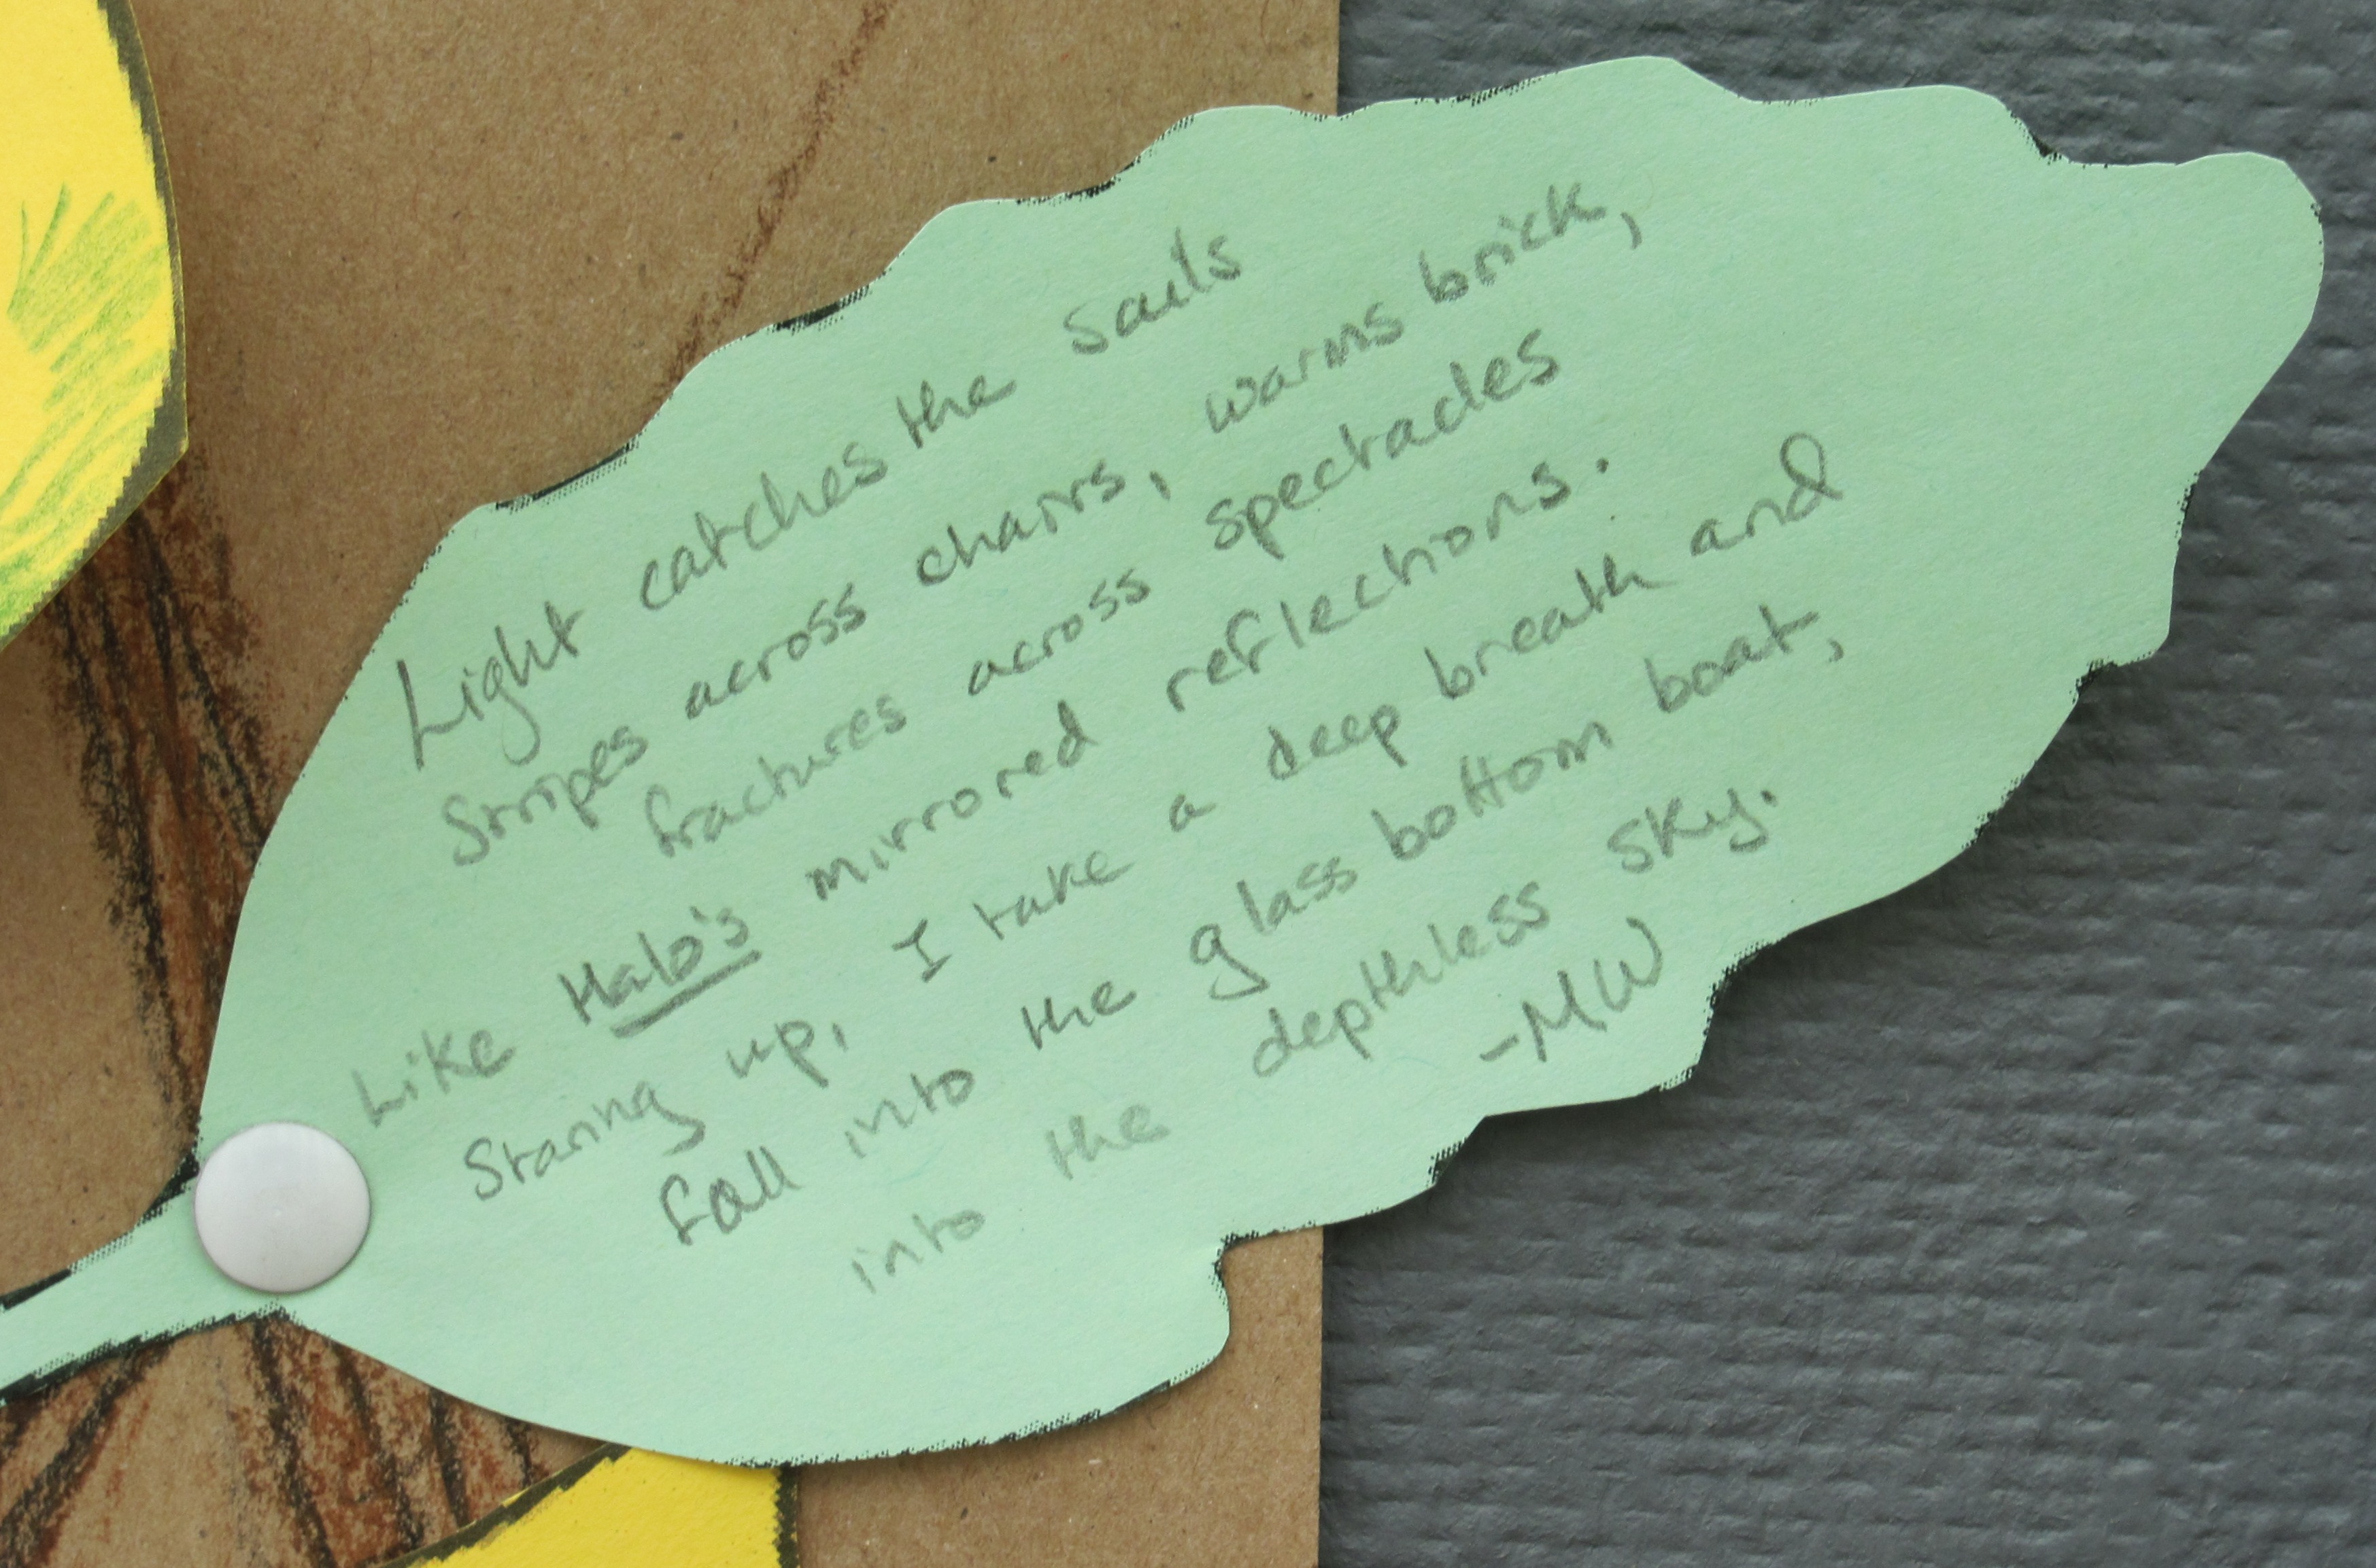 Light catches the sails
Stripes across chairs, warms brick,
fractures across spectacles
Like Halo's mirrored reflections.
Staring up, I take a deep breath and
fall into the glass bottom boat,
into the depthless sky.
-MW